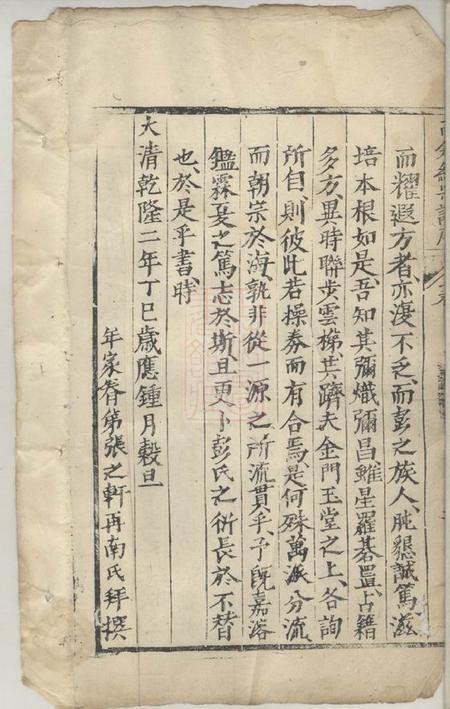 而耀遐方者亦復不乏而彭之族人肫懇誠篤滋
培本根如是吾知其彌熾彌昌雖星羅碁置占籍
多方異時聯步雲梯其躋夫金門玉堂之上各詢
所自則彼此若操券而有合焉是何殊萬派分流
而朝宗於海孰非從一源之所流貫乎予既嘉溶
鑑霖夏之篤志於斯且更卜彭氏之衍長於不替
也於是乎書時
大清乾隆二年丁巳歲應鍾月榖旦
年家眷弟張之軒再南氏拜撰